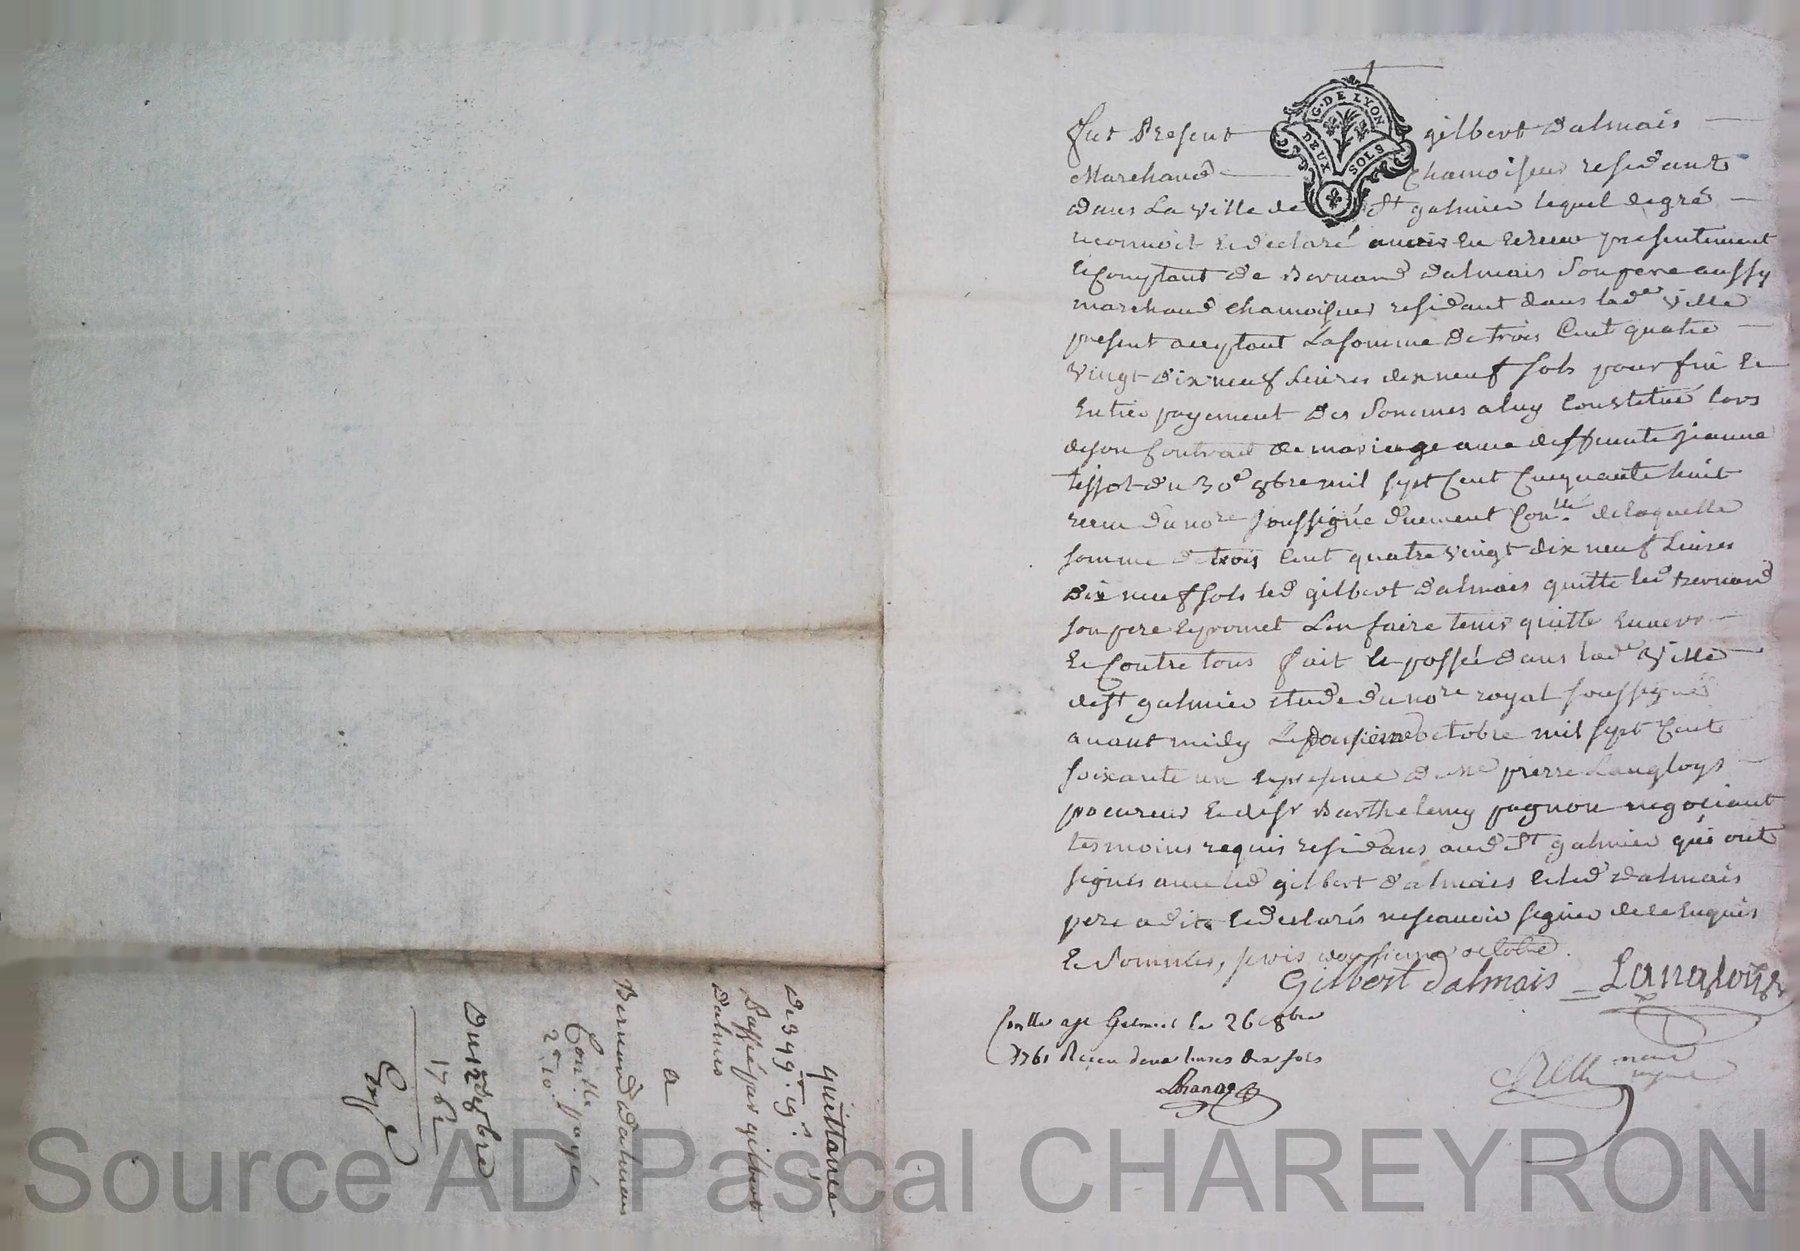 G. DE LYON
DEUX SOLS
fut Present gilbert Dalmais
Marchand Chamoiseur residant
dans La ville de St galmier lequel degré
reconnoit et declaré avoir eu et receu presentement
et Comptant de Bernard dalmais Son pere aussy
marchand chamoiseur residant dans lade ville
present acceptant La somme de trois Cent quatre
vingt dix neuf Livres dix neuf sols pour fin et
Entier payement des Sommes a luy Constitué lors
de son Contrat de mariage avec deffunte jeanne
tissot du 30e 8bre mil sept Cent Cinquante huit
receu du nore soussigné duement Conllé de laquelle
somme de trois Cent quatre vingt dix neuf Livres
dix neuf sols led gilbert dalmais quitte led Bernard
son pere et promet L'en faire tenir quitte Envers
et Contre tous fait et passé dans lade ville
de St galmier etude du nore royal soussigné
avant midy Le octobre mil sept Cent
soixante un et presence de Me pierre Langloys
procureur et de sr Barthelemy pagnon negociant
tesmoins requis residans aud St galmier qui ont
signés avec led gilbert dalmais et led dalmais
pere a dit et declaré ne scavoir signer de ce enquis
et Sommés, octobre
Gilbert dalmais Langloys
Conllé a St Galmier le 26 8bre
1761 Receu deux livres dix sols
quittance
de 399# 19s
Passé par gilbert
dalmais
a
Bernard dalmais
Conllé payé
2# 10s
Du 8bre
176